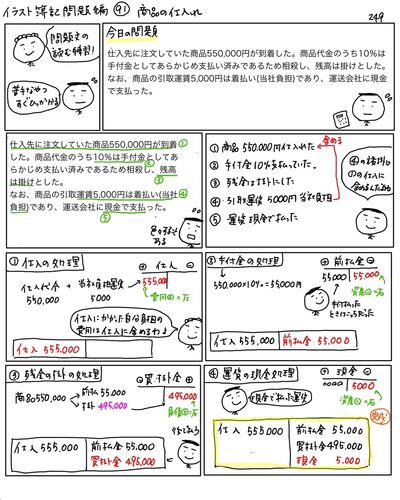 イラスト簿記 問題編 91 商品の仕入れ
249
問題文の
読む練習!
苦手なやつ
すぐひっかかる
今日の問題
仕入先に注文していた商品550,000円が到着した。商品代金のうち10%は手付金としてあらかじめ支払い済みであるため相殺し、残高は掛けとした。
なお、商品の引取運賃5,000円は着払い(当社負担)であり、運送会社に現金で支払った。
仕入先に注文していた商品550,000円が到着
した。商品代金のうち10%は手付金としてあ
らかじめ支払い済みであるため相殺し、残高
は掛けとした。
なお、商品の引取運賃5,000円は着払い(当社
負担)であり、運送会社に現金で支払った。
① 商品 550,000円仕入れた
② 手付金 10%支払っていた。
③ 残金は掛けにした
④ 引取運賃 5000円 当社負担
⑤ 運賃 現金で払った
含める
① 仕入の処理
仕入代金 + 当社負担運賃
550,000 5000
⊕ 仕入 ⊖
555,000
仕入にかかった自分負担の
費用は仕入に含めるわよ
仕入 555,000
② 手付金の処理
550,000×10%=55,000円
⊕ 前払金 ⊖
55,000 55,000
仕入 555,000 前払金 55,000
③ 残金の掛けの処理
商品550,000
前払 55,000
掛け 495,000
⊖ 買掛金 ⊕
495,000
仕入 555,000 前払金 55,000
買掛金 495,000
④ 運賃の現金処理
現金で払った運賃
⊕ 現金 ⊖
5000
完成!
仕入 555,000 前払金 55,000
買掛金 495,000
現金 5,000